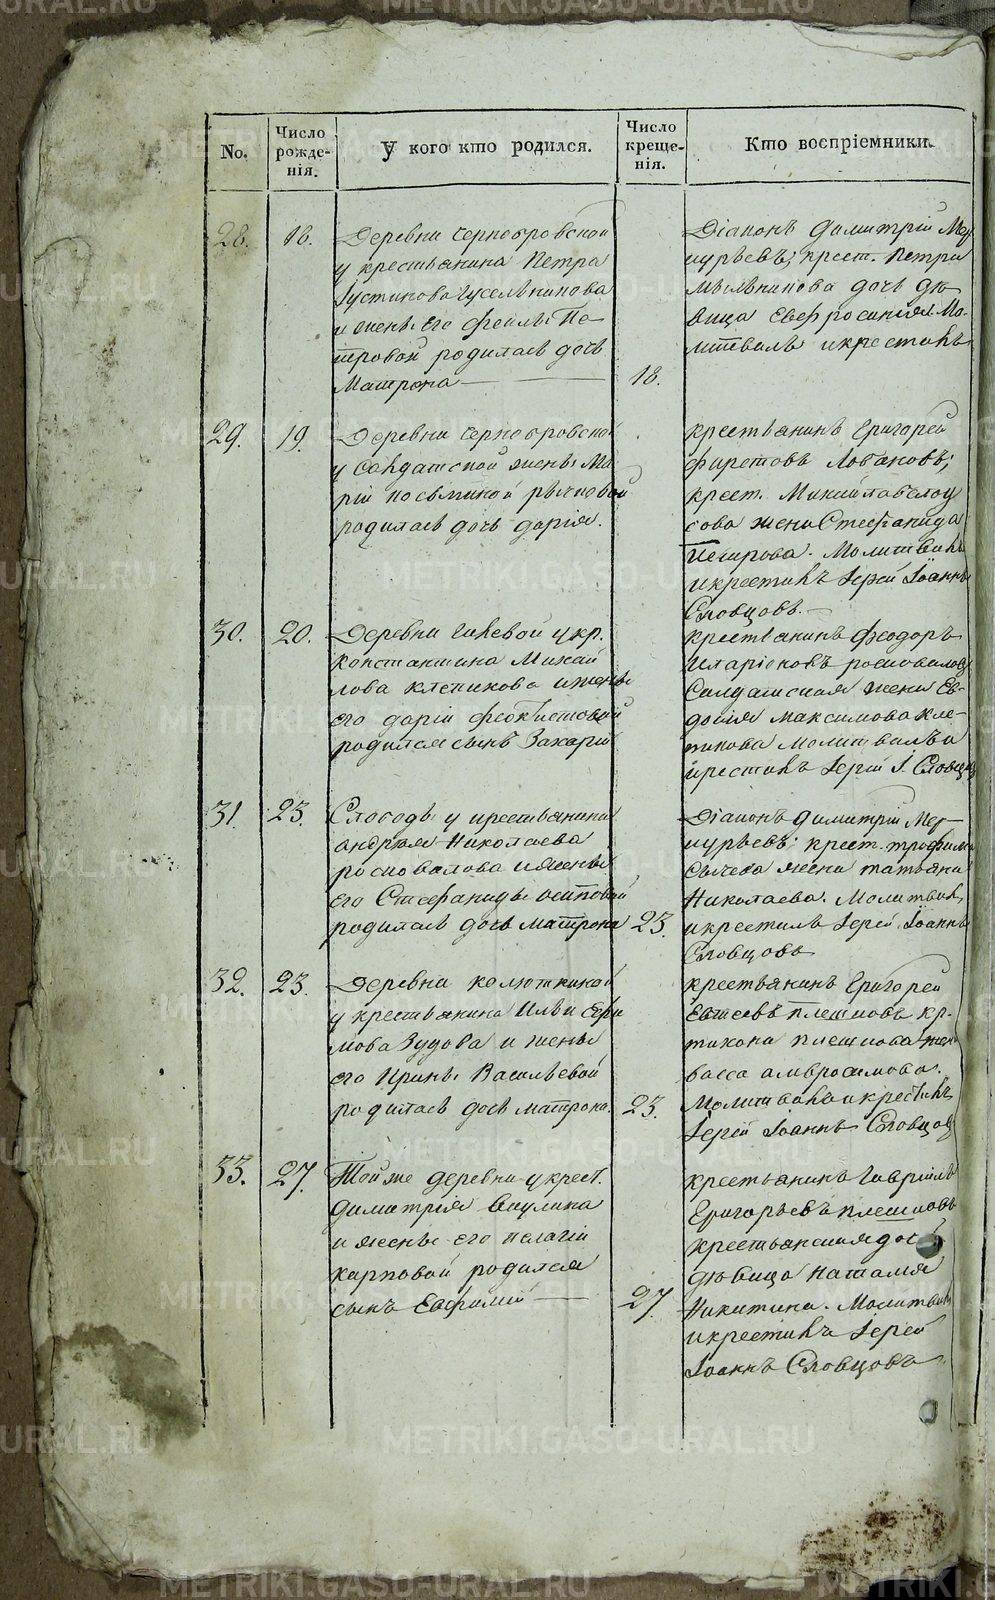 No.
Число рожде-
нія.
У кого кто родился.
Число креще-
нія.
Кто воспріемники.
28.
18.
Деревни Чернобровской
у крестьянина Петра
Іустинова Гусельникова
и жены его Феклы Пе-
тровой родилась дочь
Матрона
18.
Діаконъ Димитрій Мер-
курьевъ; крест. Петра
Мыльникова дочь дѣ-
вица Евфросинія. Мо-
литвалъ и крестилъ
29.
19.
Деревни Чернобровской
у солдатской жены Ма-
рій
родилась дочь Дарія.
крестьянинъ Григорей
Лобановъ;
крест. Михаила
сова жена Стефанида
Петрова. Молитвилъ
и крестилъ Іерей Іоаннъ
Словцовъ.
30.
20.
Деревни Гилевой у кр.
Константина Михай
лова Клепикова и жены
его Даріи Феоктистовой
родился сынъ Захарій
крестьянинъ Феодоръ
Иларіоновъ Росповаловъ
Салдатская жена Ев-
докія Максимова Кле-
пикова Молитвалъ
и крестилъ Іерей І. Словцовъ
31.
23.
Слободы у крестьянина
Андрея Николаева
Росповалова и жены
его Стефаниды Осиповой
родилась дочь Матрона
23.
Діаконъ Димитрій Мер-
курьевъ; крест. Трофима
Сычева жена Татьяна
Николаева. Молитвилъ
и крестилъ Іерей Іоаннъ
Словцовъ
32.
23.
Деревни Колюткиной
у крестьянина Ильи
Зудова и жены
его Ирины Васильевой
родилась дочь Матрона.
23.
крестьянинъ Григорей
Евсеевъ Плешковъ кр.
Тихона Плешкова жена
Васса Амвросимова.
Молитвилъ и крестилъ
Іерей Іоаннъ Словцовъ
33.
27.
Той же деревни у крест.
Димитрія Викулина
и жены его Пелагіи
Карповой родился
сынъ Евфимій
27
крестьянинъ Гавріилъ
Григорьевъ Плешковъ
крестьянская дочь
дѣвица Наталія
Никитина. Молитвилъ
и крестилъ Іерей
Іоаннъ Словцовъ
METRIKI.GASO-URAL.RU